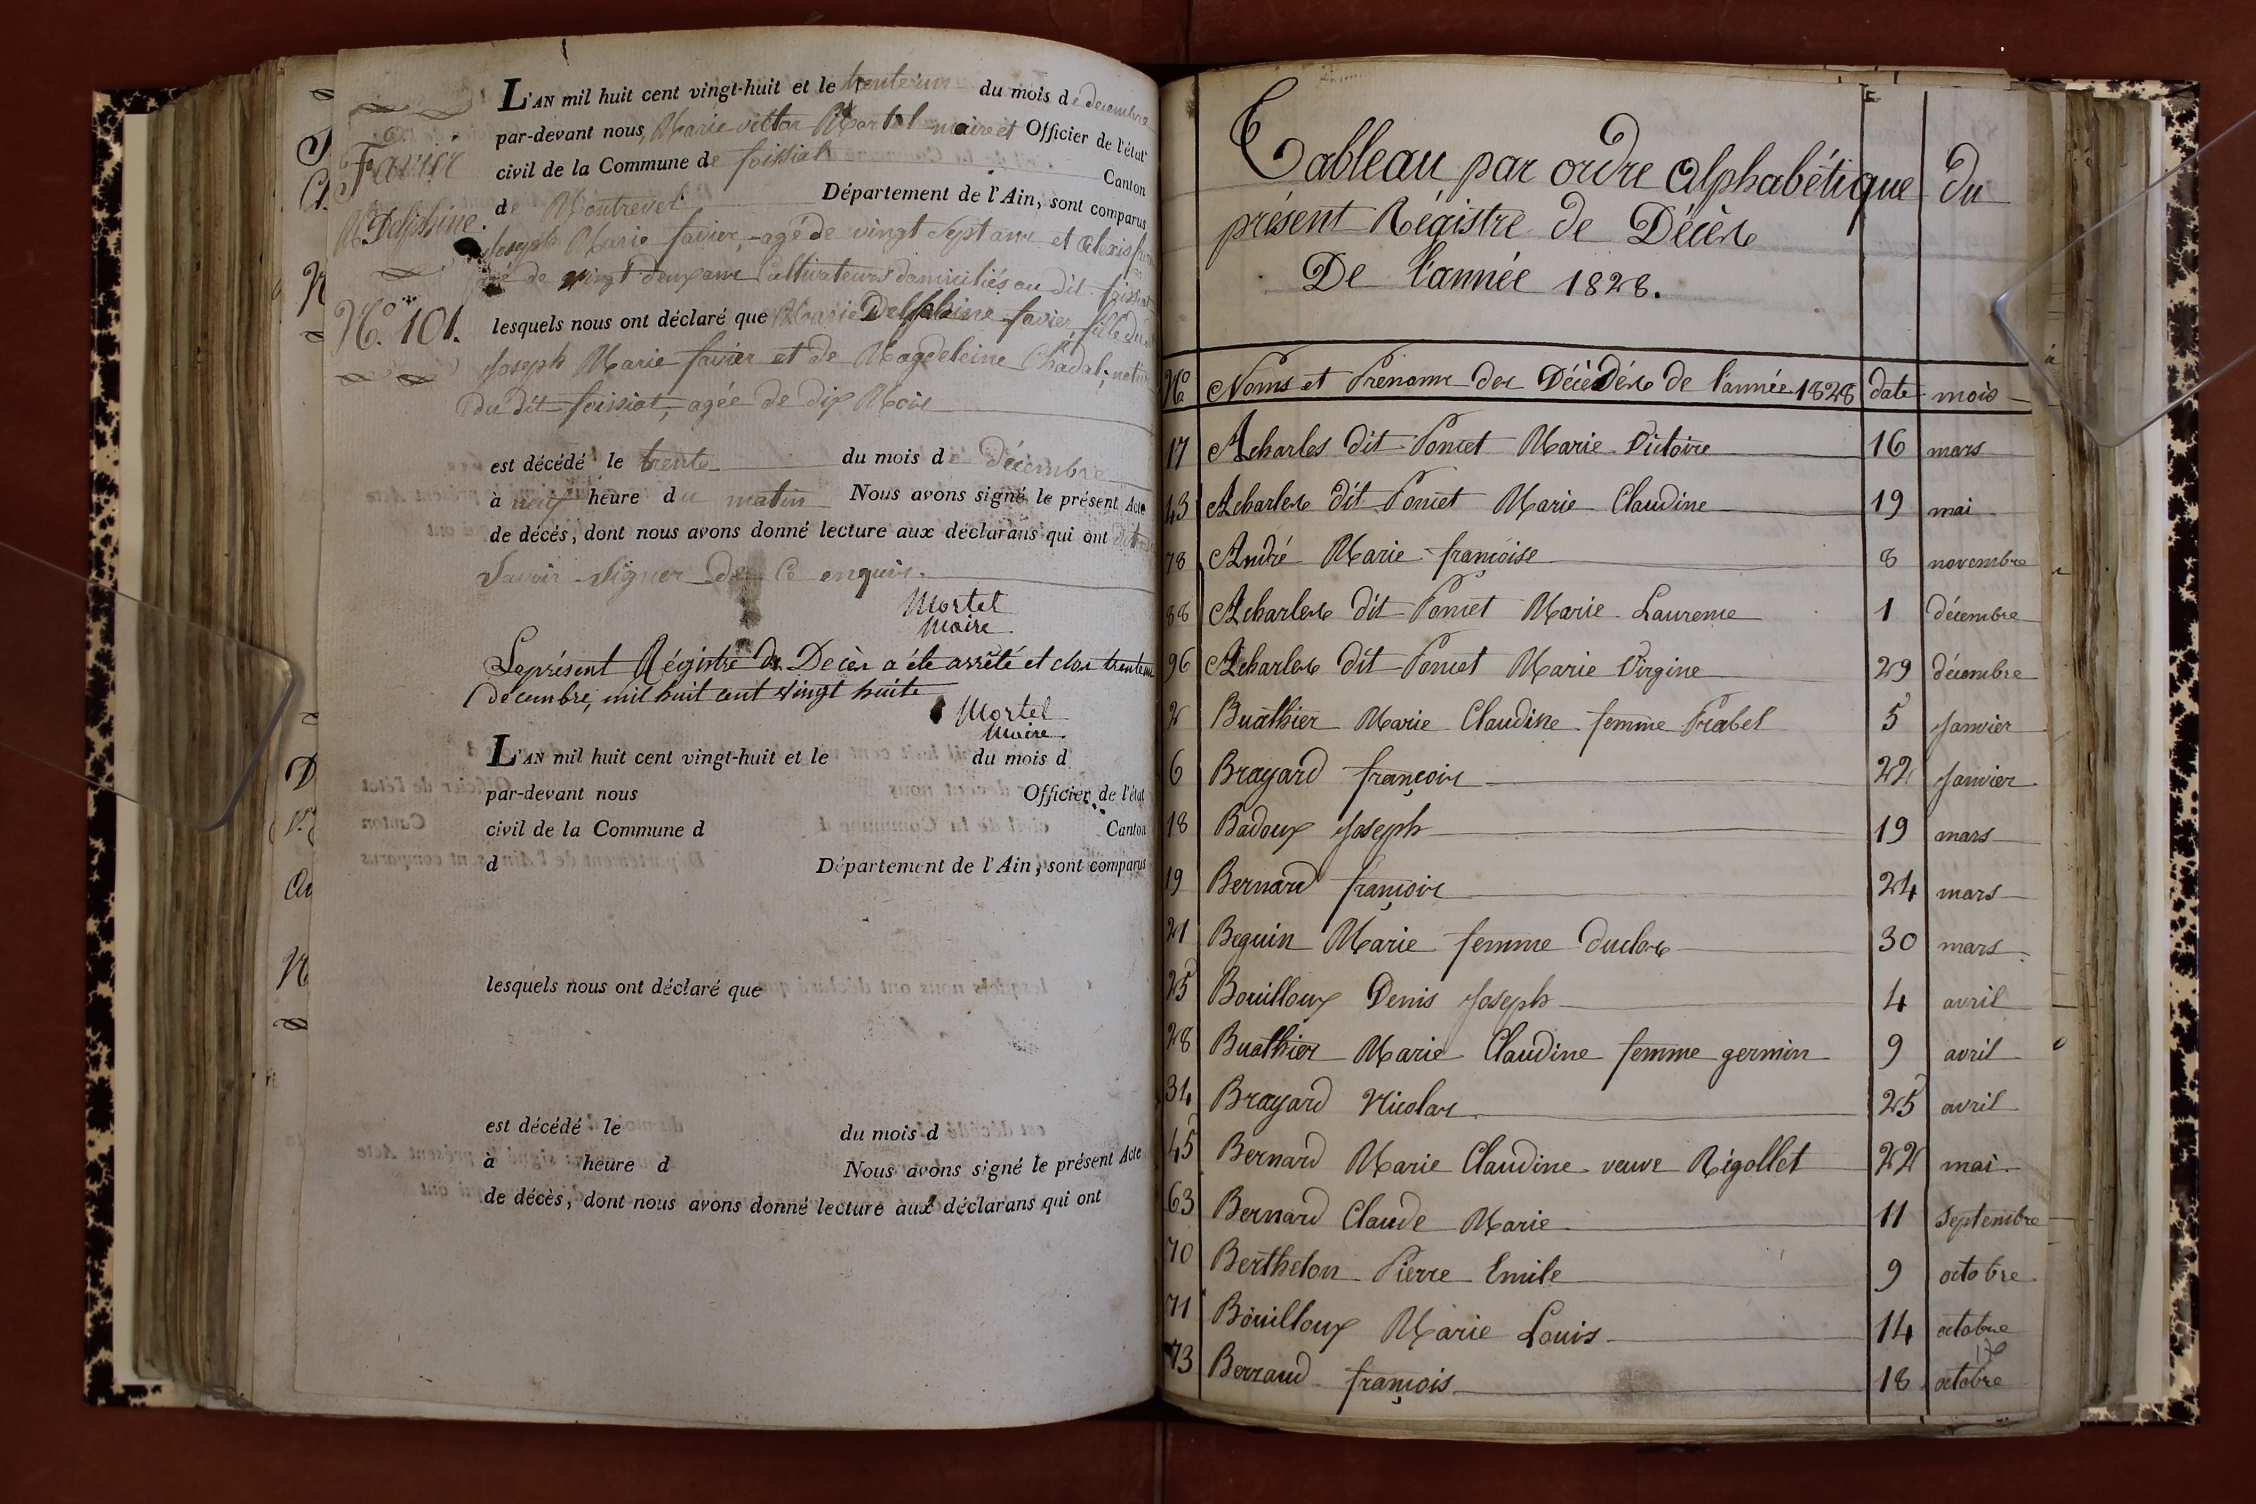 Favier
M. Delphine.
N.º 101.
L'AN mil huit cent vingt-huit et le trente un du mois de décembre
par-devant nous, Marie victor Mortel maire et Officier de l'état
civil de la Commune de foissiat Canton
de Montrevel Département de l'Ain, sont comparus
Joseph Marie favier, agé de vingt Sept ans et Alexis
agé de vingt deux ans Cultivateurs domiciliés au dit foissiat
lesquels nous ont déclaré que Marie Delphine favier, fille du dit
Joseph Marie favier et de Magdeleine Chadal, native
du dit foissiat, agée de dix Mois
est décédé le trente du mois de Décembre
à neuf heure du matin Nous avons signé le présent Acte
de décés, dont nous avons donné lecture aux déclarans qui ont dit ne
Savoir Signer de Ce enquis.
Mortel
Maire
Le présent Régistre de Décès a été arrêté et clos trente un
décembre, mil huit cent vingt huite
Mortel
Maire.
L'AN mil huit cent vingt-huit et le du mois d
par-devant nous Officier de l'état
civil de la Commune d Canton
d Département de l'Ain, sont comparus
lesquels nous ont déclaré que
est décédé le du mois d
à heure d Nous avons signé le présent Acte
de décès, dont nous avons donné lecture aux déclarans qui ont
Tableau par ordre Alphabétique du
présent Régistre de Décès
De l'année 1828.
Nº Noms et Prénoms des Décédés de l'année 1828 date mois
17 Acharles dit Poncet Marie Victoire 16 mars
43 Acharles dit Poncet Marie Claudine 19 mai
78 André Marie françoise 8 novembre
88 Acharles dit Poncet Marie Laurence 1 décembre
96 Acharles dit Poncet Marie Virgine 29 décembre
2 Buathier Marie Claudine femme Frabet 5 Janvier
6 Brayard françois 22 Janvier
18 Badoux Joseph 19 mars
19 Bernard françois 24 mars
21 Beguin Marie femme duclos 30 mars.
25 Bouilloux Denis Joseph 4 avril
28 Buathier Marie Claudine femme germin 9 avril
34 Brayard Nicolas 25 avril
45 Bernard Marie Claudine veuve Régollet 22 mai.
63 Bernard Claude Marie 11 Septembre
70 Berthelon Pierre Emile 9 octobre
71 Bouilloux Marie Louis 14 octobre
73 Berraud françois 18 octobre